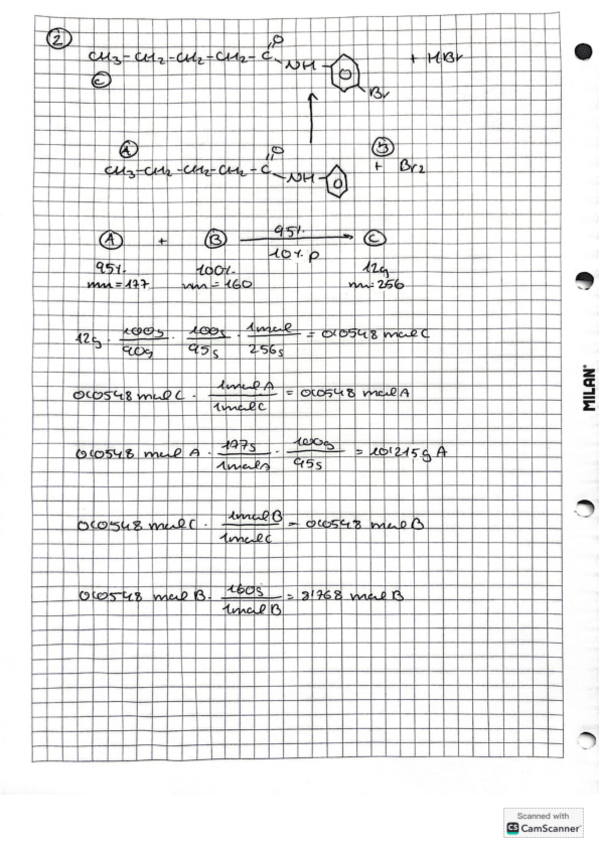 2
CH3-CH2-CH2-CH2-C O NH Br + HBr
C
A B
CH3-CH2-CH2-CH2-C O -NH + Br2
A + B 95% C
10% p
95% 100% 12g
mm=177 mm=160 m=256
12g · 100g/90g · 100g/95g · 1mol/256g = 0'0548 mol C
0'0548 mol C · 1mol A/1mol C = 0'0548 mol A
0'0548 mol A · 177g/1mol A · 100g/95g = 10'215g A
0'0548 mol C · 1mol B/1mol C = 0'0548 mol B
0'0548 mol B · 160g/1mol B = 8'768 mol B
MILAN®
Scanned with
CS CamScanner